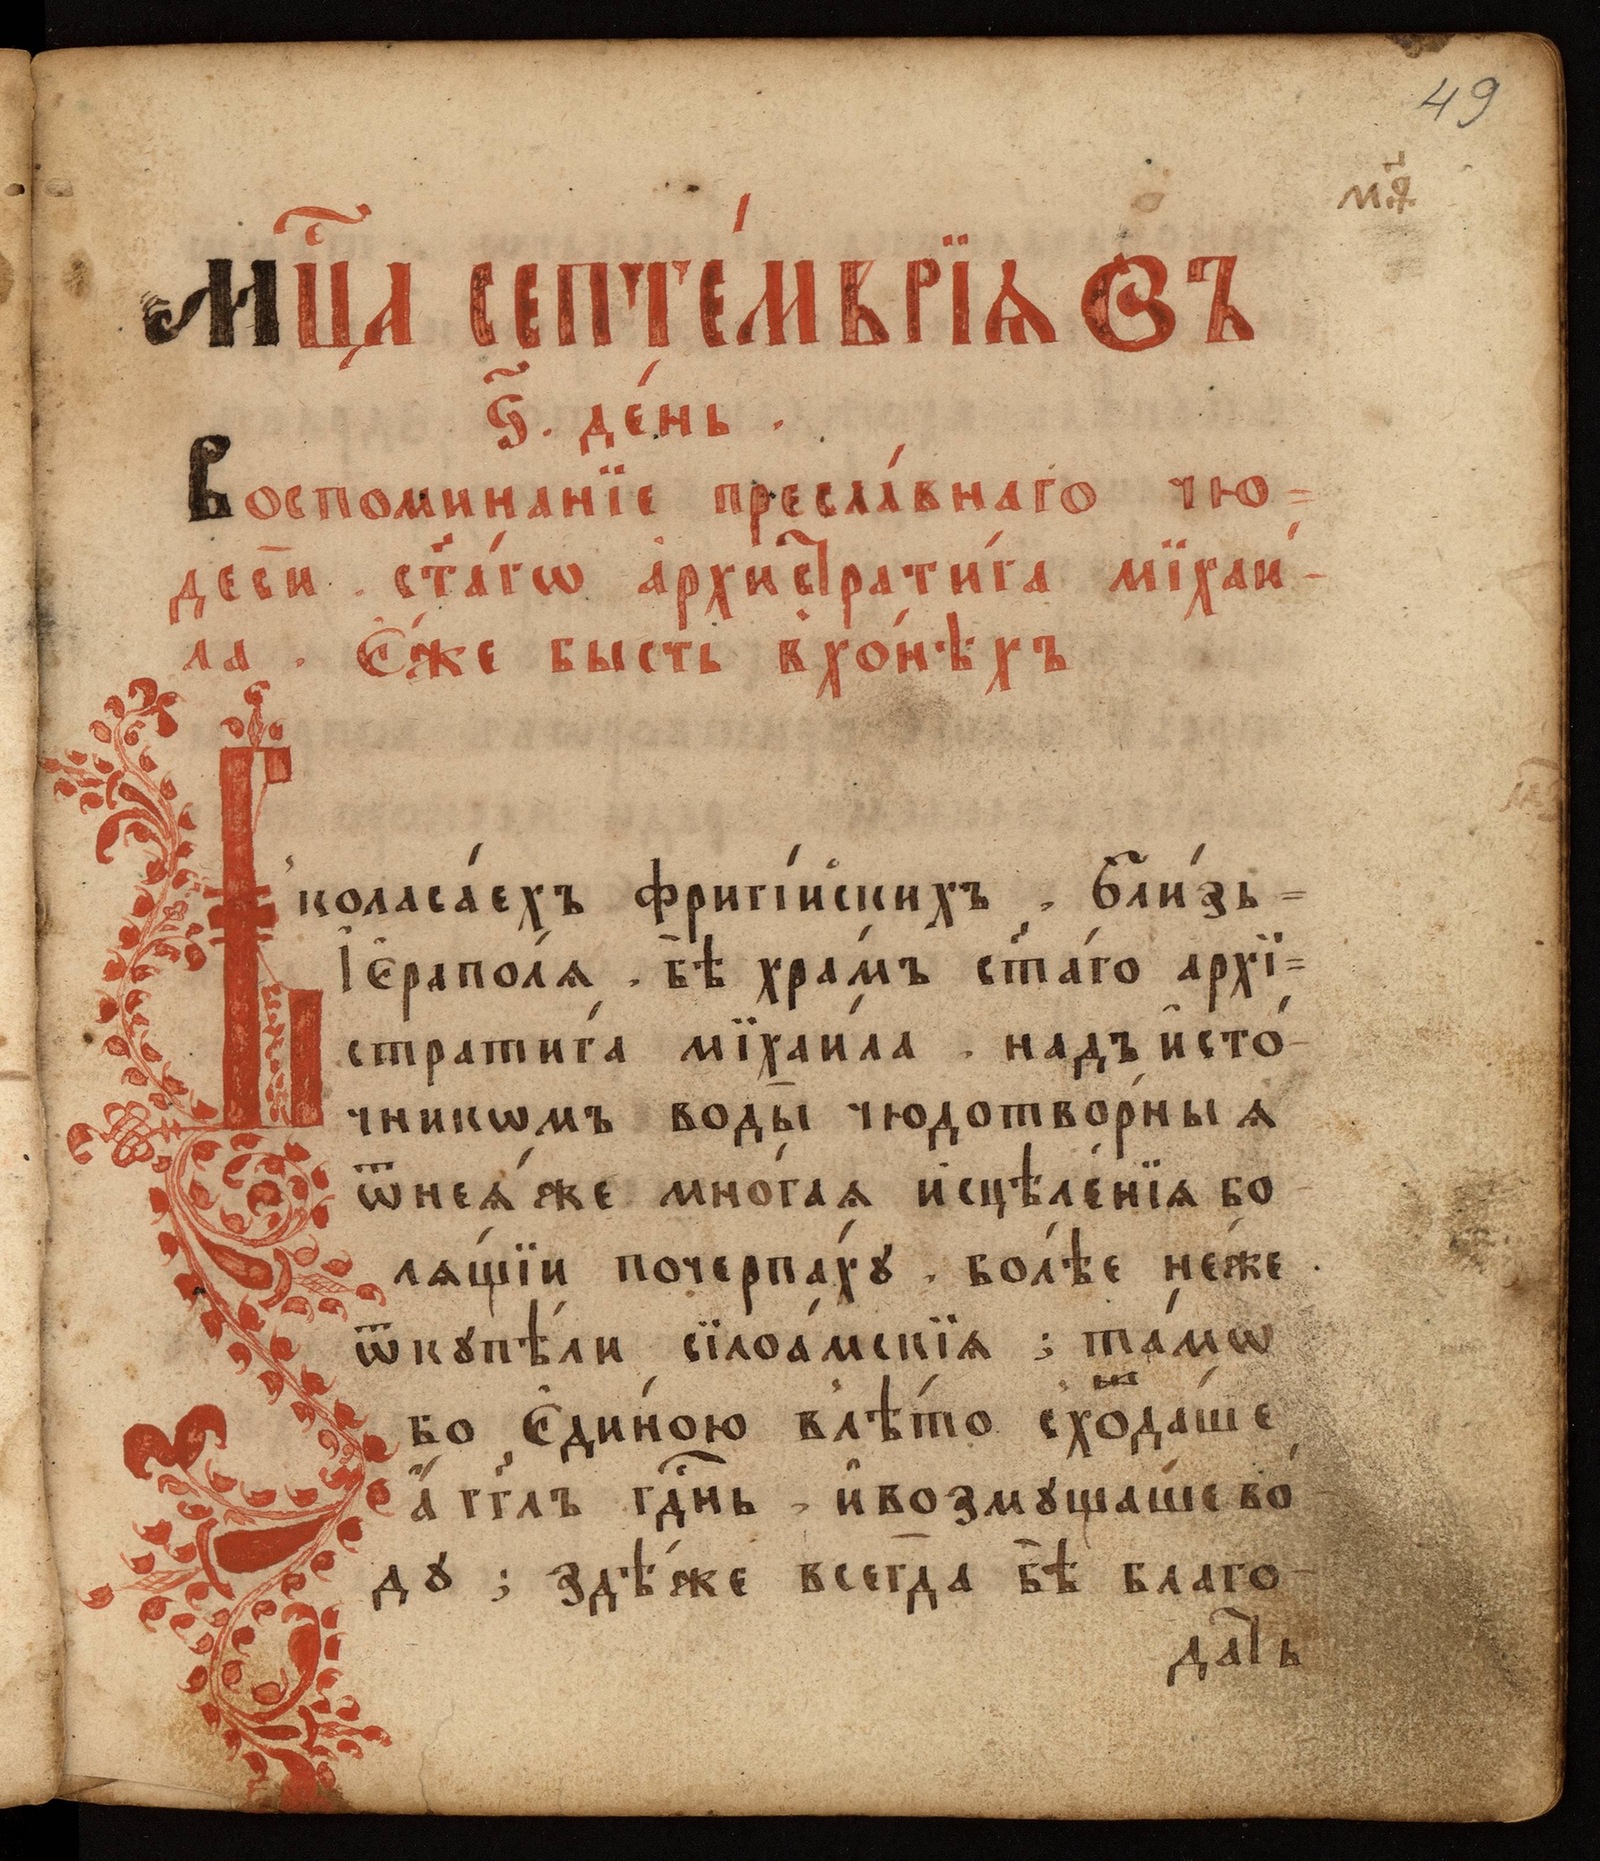 49
м҃ѳ
Мц҃а септе́мврїѧ въ
ѕ҃. де́нь.
Воспоминанїе пресла́внаго чю=
деси . ст҃а́гѡ архистрати́га мїхаи́-
ла . Е́же бысть в хо́нѣхъ
Въ коласа́ехъ фригі́йскихъ , бли́зь=
Іерапо́лѧ , бѣ̀ хра́мъ ст҃а́го архї=
стратига мїхаи́ла . надъ исто́-
чникѡмъ воды̀ чюдотво́рныѧ
ѿнеѧ́же мно́гаѧ исцѣле́нїѧ бо-
лѧ́щїи почерпа́хꙋ , бо́лѣе не́же .
ѿкꙋпѣ́ли сїлоа́мскїѧ ; та́мѡ
бо Еди́ною влѣ́то схожда́ше
а́гг҃лъ гдⷭ҇нь , и возмꙋща́ше во́
дꙋ ; здѣ́же всегда̀ бѣ̀ благо-
да́ть